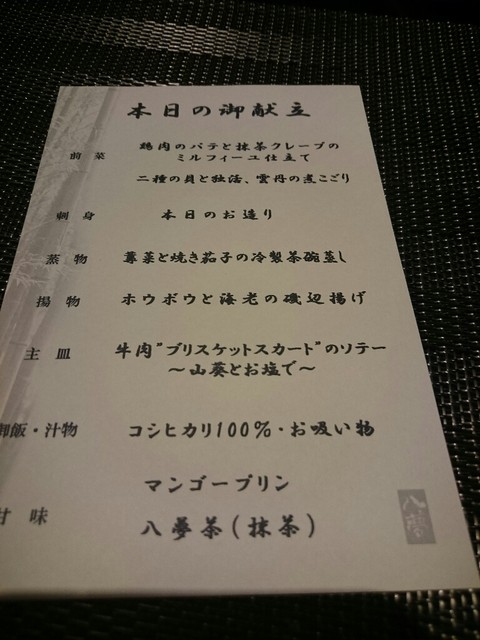 本日の御献立
前菜 鶏肉のパテと抹茶クレープの
ミルフィーユ仕立て
二種の貝と独活、雲丹の煮こごり
刺身 本日のお造り
蒸物 蓴菜と焼き茄子の冷製茶碗蒸し
揚物 ホウボウと海老の磯辺揚げ
主皿 牛肉"ブリスケットスカート"のソテー
〜山葵とお塩で〜
御飯・汁物 コシヒカリ100%・お吸い物
マンゴープリン
甘味 八夢茶(抹茶)
八夢